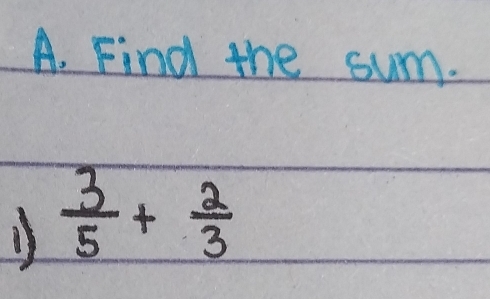 A. Find the sum.
1) 3/5 + 2/3